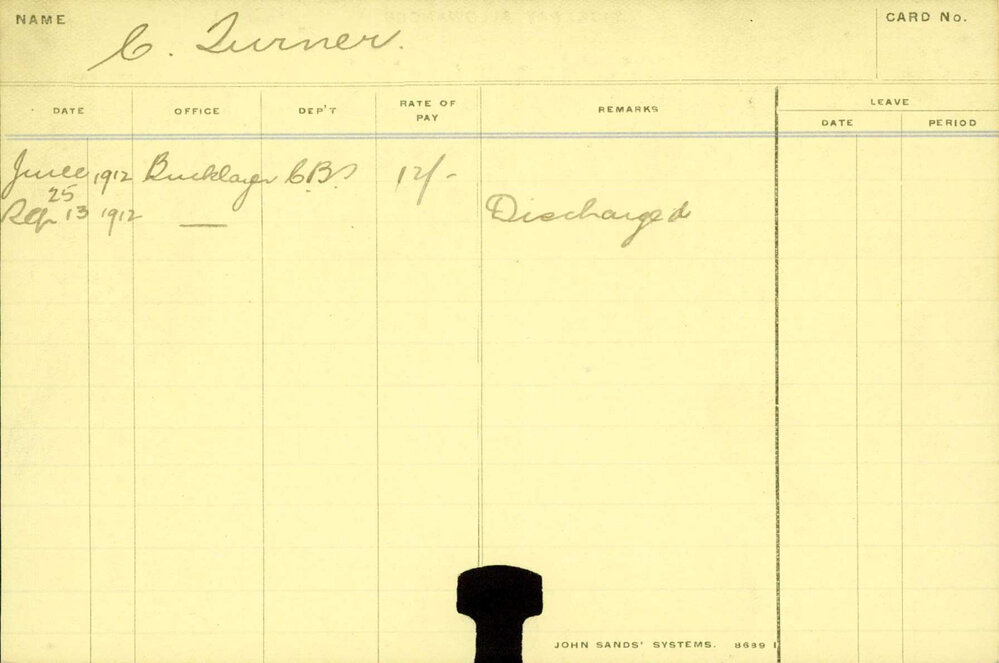 NAME C. Turner. CARD No.
LEAVE
DATE OFFICE DEP'T RATE OF PAY REMARKS DATE PERIOD
June 25 1912 Bricklayer C.B.S 12/-
Sep 13 1912 — Discharged
JOHN SANDS' SYSTEMS. 8689 1